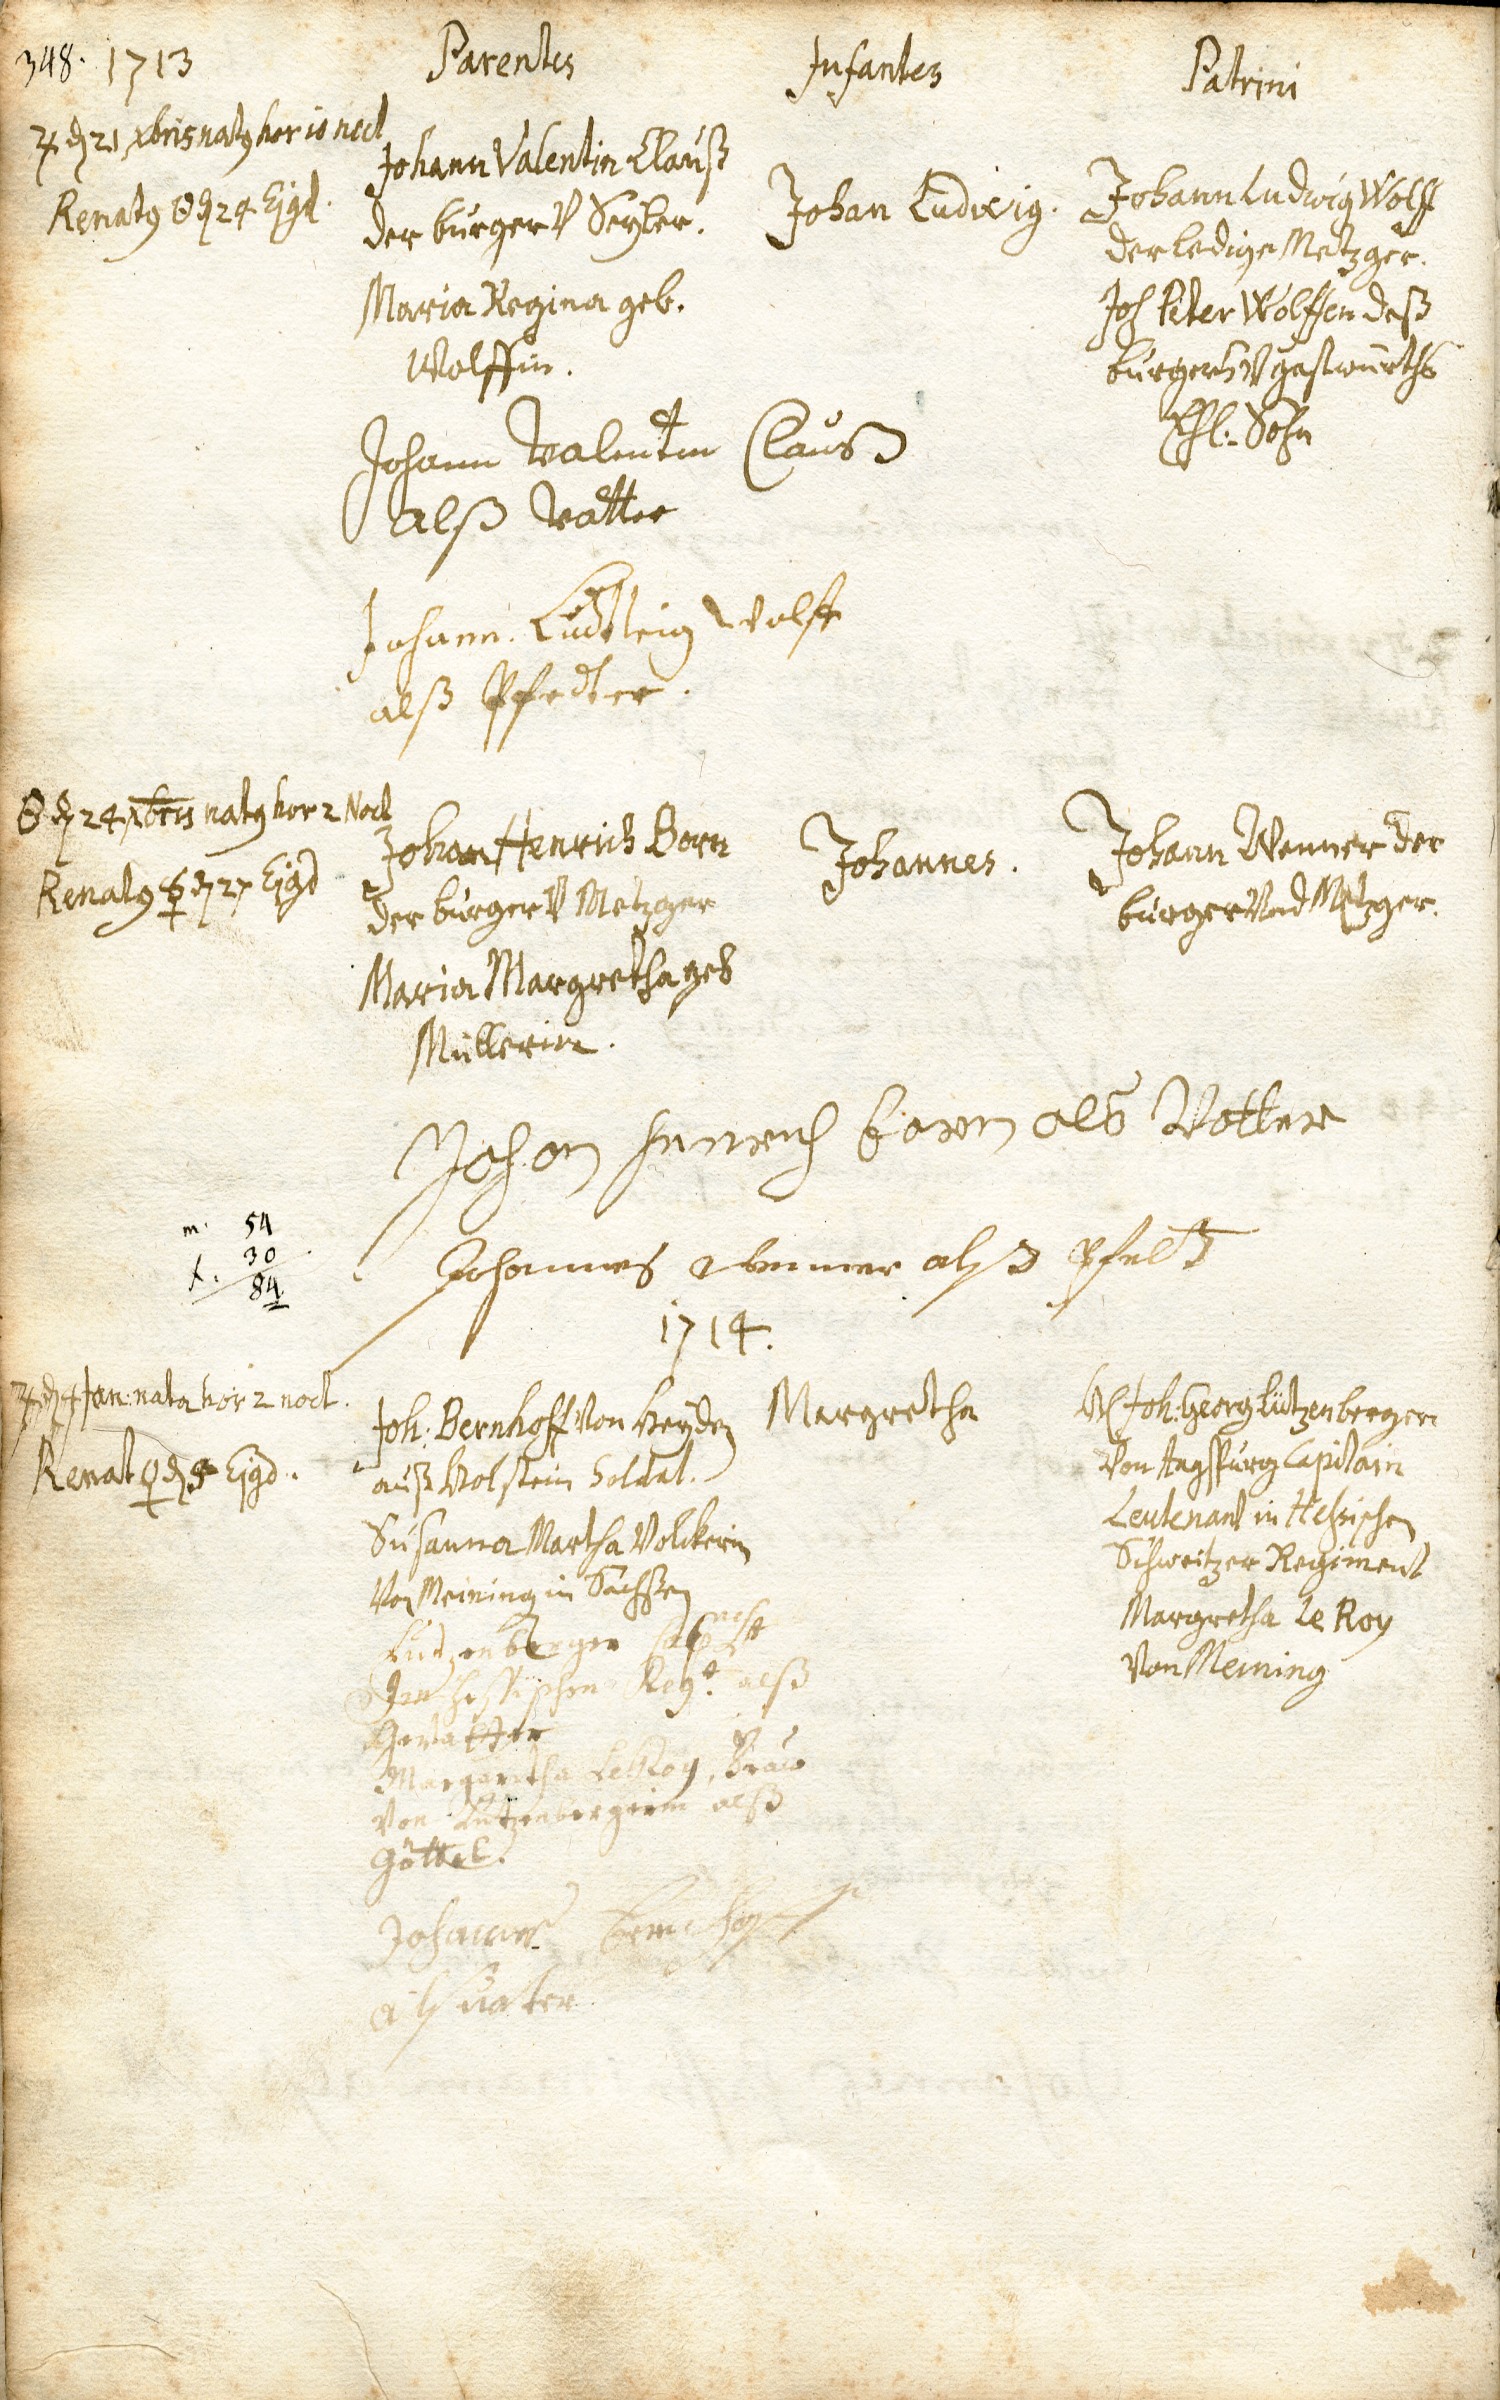 348. 1713 Parentes Infantes Patrini
♃ d 21 xbris natq hor 10 noct
Renatq ☉ d 24 Ejgd.
Johann Valentin Clauß
der burger V Seyler.
Maria Regina geb.
Wolffin.
Johan Ludwig.
Johann Ludwig Wolff
der ledige Metzger.
Joh Peter Wolffen deß
burgers V gastwürths
Ehl: Sohn
Johann Valentin Clauß
alß Vatter
Johann Ludwig Wolff
alß Pfedter.
☉ d 24 xbris natq hor 2 Noct
Renatq d 27 Ejgd
Johan Henrich Born
der burger V Metzger
Maria Margretha geb
Müllerin.
Johannes.
Johann Wenner der
burger Vnd Metzger.
Johan Henrich born als Vatter
m. 54
f. 30
84
Johannes Wenner alß Pfett
1714.
♃ d 4 Jan: nata hor 2 noct.
Renat ♀ d 5 Ejgd.
Joh: Bernhoff von Heyden
auß Holstein Soldat.
Susanna Martha Volckerin
Von Meining in Sachßen
Margretha
H Joh: Georg Lützenberger
Von Augspurg Capitain
Leutenant in Heßischen
Schweitzer Regiment
Margretha Le Roy
Von Meining
Lutzenberger
heßischen Regt. alß
Gevatter
Margaretha Le Roy, Frau
Von Lutzenbergerin alß
Göttel.
Johannes
alß vater